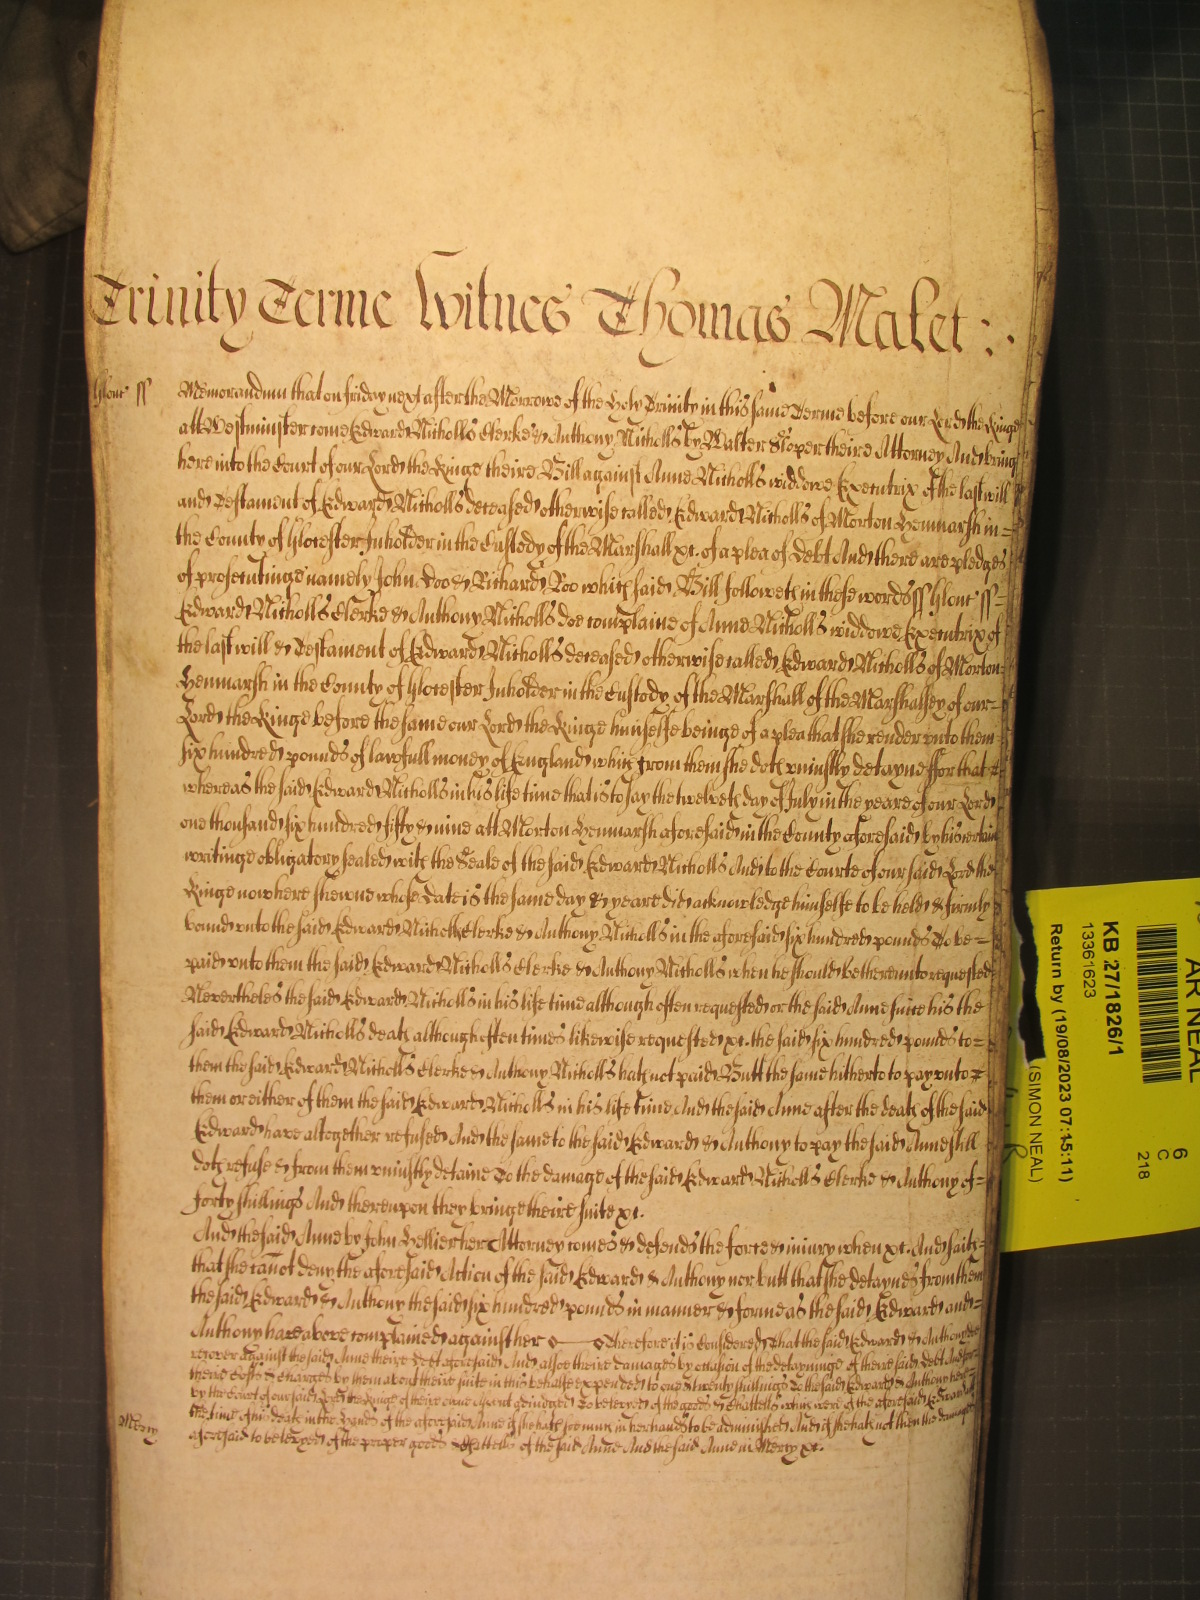 Trinity Terme Witnes Thomas Malet :.
Glouc ss Memorandum that on Friday next after the Morrowe of the Holy Trinity in this same Terme before our Lord the Kinge
att Westminster come Edward Nicholls Clerke & Anthony Nicholls by Walter Sloper theire Attorney And bring
here into the Court of our Lord the Kinge theire Bill against Anne Nicholls widdowe Executrix of the last will
and Testament of Edward Nicholls deceased otherwise called Edward Nicholls of Morton Henmarsh in =
the County of Glocester Inholder in the Custody of the Marshall &c. of a plea of Debt And there are pledges
of prosecutinge namely John Doo & Richard Roo which said Bill followeth in these words ss Glouc ss =
Edward Nicholls Clerke & Anthony Nicholls doe complaine of Anne Nicholls widdowe Executrix of
the last will & Testament of Edward Nicholls deceased otherwise called Edward Nicholls of Morton
Henmarsh in the County of Glocester Inholder in the Custody of the Marshall of the Marshalsey of our =
Lord the Kinge before the same our Lord the Kinge himselfe beinge of a plea that she render unto them
six hundred pounds of lawfull money of England which from them she doth uniustly detayne ffor that
whereas the said Edward Nicholls in his life time that is to say the twelveth day of July in the yeare of our Lord
one thousand six hundred fifty & nine att Morton Henmarsh aforesaid in the County aforesaid by his certain
writinge obligatory sealed with the Seale of the said Edward Nicholls And to the Courte of our said Lord the
Kinge now here shewne whose date is the same day & yeare did acknowledge himselfe to be held & firmly
bound unto the said Edward Nicholls Clerke & Anthony Nicholls in the aforesaid six hundred pounds To be =
paid unto them the said Edward Nicholls Clerke & Anthony Nicholls when he should be thereunto requested
Nevertheles the said Edward Nicholls in his life time although often requested or the said Anne since his the
said Edward Nicholls death although often times likewise requested &c. the said six hundred pounds to =
them the said Edward Nicholls Clerke & Anthony Nicholls hath not paid Butt the same hitherto to pay unto
them or either of them the said Edward Nicholls in his life time And the said Anne after the death of the said
Edward have altogether refused And the same to the said Edward & Anthony to pay the said Anne still
doth refuse & from them uniustly detaine To the damage of the said Edward Nicholls Clerke & Anthony of =
forty shillings And thereupon they bringe theire suite &c.
And the said Anne by John Hellier her Attorney comes & defends the force & iniury when &c. And saith =
that she cannot deny the aforesaid Action of the said Edward & Anthony nor butt that she detaynes from them
the said Edward & Anthony the said six hundred pounds in manner & forme as the said Edward and =
Anthony have above complained against her Therefore it is Considered That the said Edward & Anthony doe
recover against the said Anne theire debt aforesaid And alsoe theire damages by occasion of the detayninge of theire said debt And for
theire Costs & Charges by them about theire suite in this behalfe expended to one & twenty shillings To the said Edward & Anthony here
by the Court of our said Lord the Kinge of theire owne Assent adiudged To be levyed of the goods & Chattells which were of the aforesaid Edward att
the time of his death in the hands of the aforesaid Anne if she hath soe much in her hands to be administred And if she hath not then the damages
Mercy aforesaid to be levyed of the proper goods & Chattells of the said Anne And the said Anne in Mercy &c.
AR NEAL
KB 27/1826/1
13361623
Return by (19/08/2023 07:15:11)
(SIMON NEAL)
6
C
218